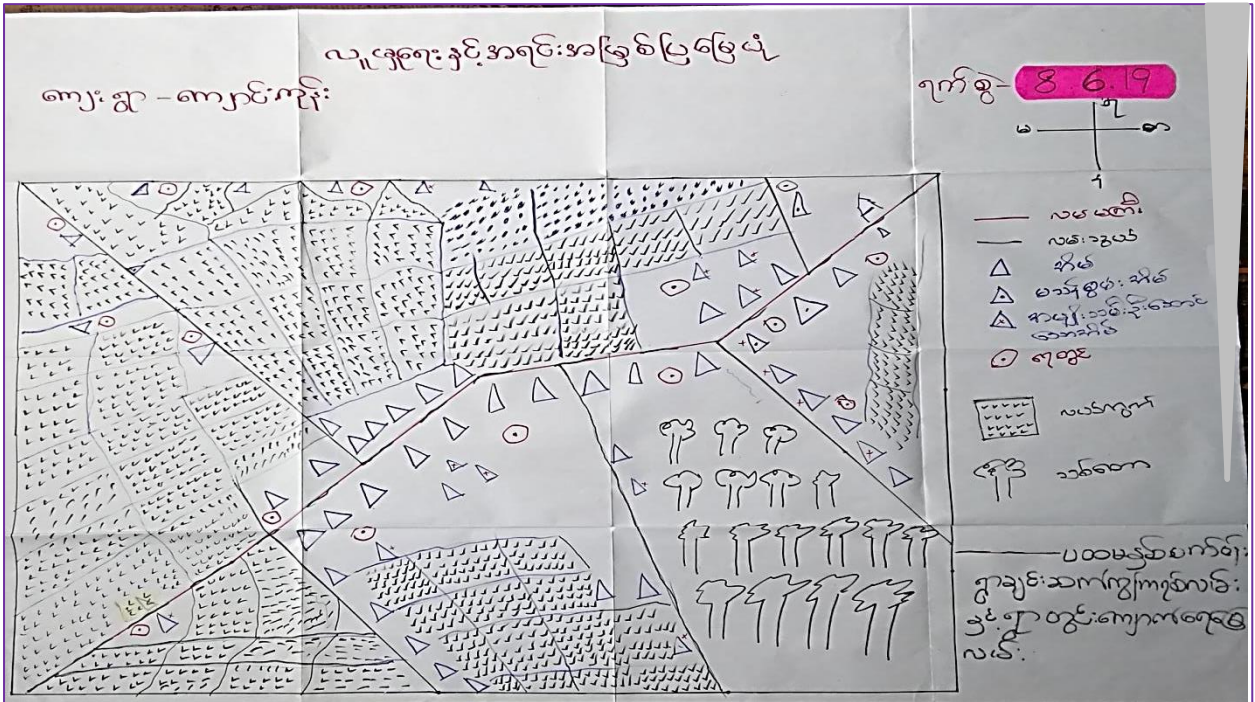 လူမှုရေးနှင့်အရင်းအမြစ်ပြမြေပုံ
ကျေးရွာ - ကျောင်းကုန်း
ရက်စွဲ - 8 6.19
မ
တ
လမ်းမကြီး
လမ်းသွယ်
အိမ်
မသန်စွမ်းအိမ်
အမျိုးသမီးဦးဆောင်
သောအိမ်
ရေတွင်း
လယ်ကွက်
သစ်တော
ပထမနှစ်စက်တန်း
ရွာချင်းဆက်ကွန်ကရစ်လမ်း
နှင့်ရွာတွင်းကျောက်ချော
လမ်း